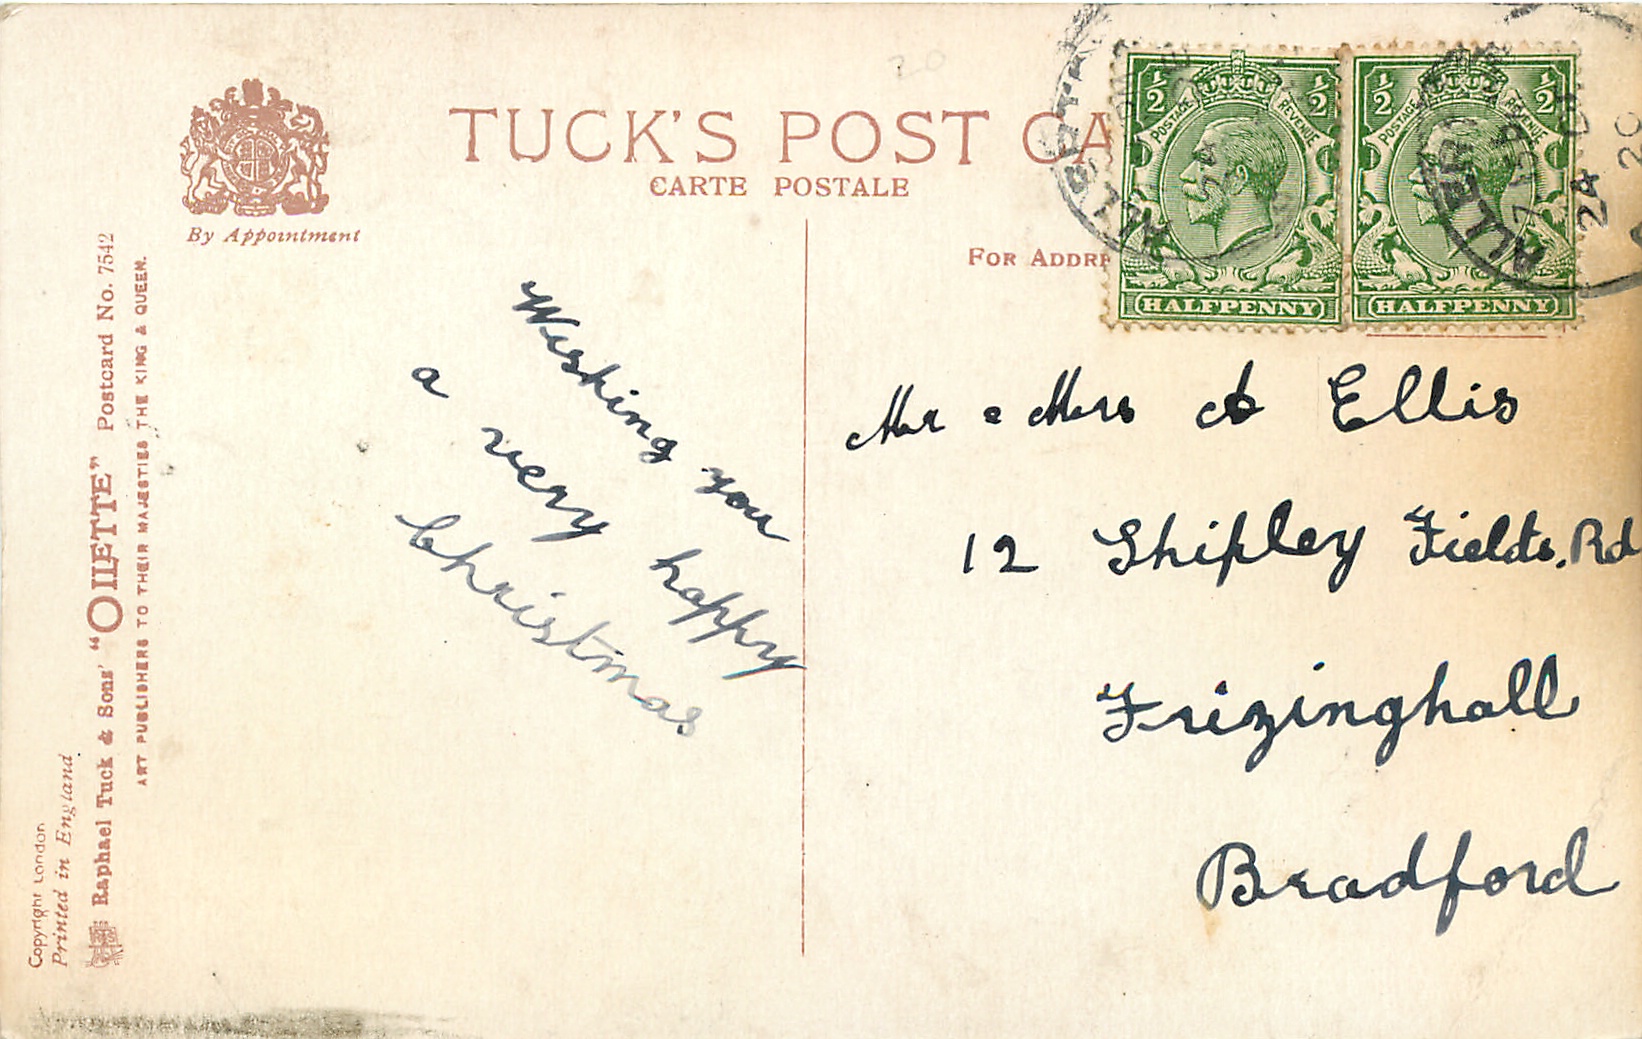 20
TUCK'S POST CA
CARTE POSTALE
By Appointment
FOR ADDRE
1/2 1/2
POSTAGE REVENUE
HALFPENNY
1/2 1/2
POSTAGE REVENUE
HALFPENNY
ALLERT
24 DE
20
Wishing you
a very happy
Christmas
Mr & Mrs A Ellis
12 Shipley Fields. Rd
Frizinghall
Bradford
Copyright London
Printed in England
Raphael Tuck & Sons' "OILETTE" Postcard No. 7542
ART PUBLISHERS TO THEIR MAJESTIES THE KING & QUEEN.